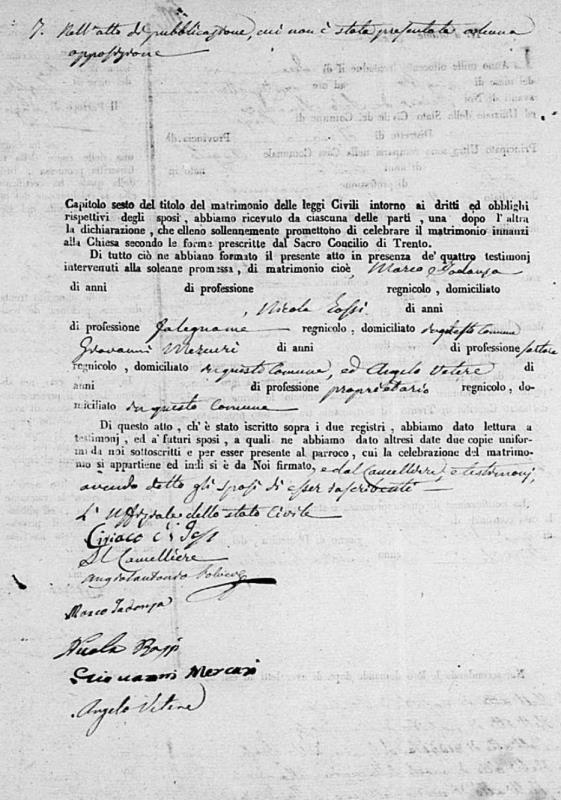 7. Nell'atto di pubblicazione, cui non è stata presentata alcuna
opposizione
Capitolo sesto del titolo del matrimonio delle leggi Civili intorno ai dritti ed obblighi
rispettivi degli sposi, abbiamo ricevuto da ciascuna delle parti, una dopo l'altra
la dichiarazione, che elleno sollennemente promettono di celebrare il matrimonio innanzi
alla Chiesa secondo le forme prescritte dal Sacro Concilio di Trento.
Di tutto ciò ne abbiamo formato il presente atto in presenza de' quattro testimonj
intervenuti alla solenne promessa, di matrimonio cioè, Marco
di anni di professione regnicolo, domiciliato
, Nicola Rossi di anni
di professione falegname regnicolo, domiciliato in questo Comune
Giovanni di anni di professione sartore
regnicolo, domiciliato in questo Comune, ed Angelo Vetere di
anni di professione proprietario regnicolo, do-
miciliato in questo comune
Di questo atto, ch'è stato iscritto sopra i due registri, abbiamo dato lettura a
testimonj, ed a' futuri sposi, a quali ne abbiamo dato altresì date due copie unifor-
mi da noi sottoscritti e per esser presente al parroco, cui la celebrazione del matrimo-
nio si appartiene ed indi si è da Noi firmato, e dal Cancelliere, e testimonj,
avendo detto gli sposi di esser
L'Uffiziale dello stato Civile
Ciriaco
Il Cancelliere
Angelantonio
Marco
Nicola Rossi
Giovanni
Angelo Vetere